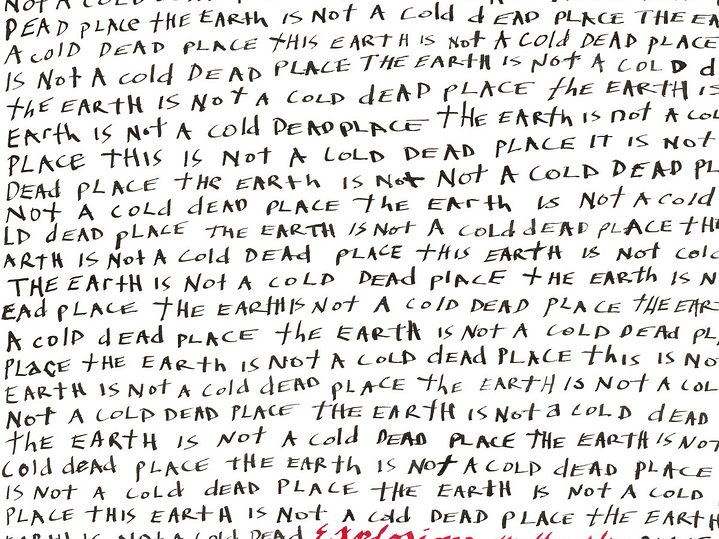 NOT A COLD
DEAD PLACE THE EARTH IS NOT A COLD dEAD PLACE THE EA
A COLD DEAD PLACE THIS EARTH IS Not A COLD DEAD pLACE
IS Not A cold DEAD PLACE THE EARTH IS NOT A COLD d
thE EARTH IS NOT A COLD dEAD PLACE the EARTH IS
EARth IS Not A cold DEADPLACE tHE EARTH IS not A COL
PLACE THIS IS Not A COLD DEAD PLACE IT IS NOT
DEAd pLACE tHE EARth IS Not Not A COLD DEAD PL
NOT A COLd dEAD PLACE The EArth is Not A cold
LD dEAD pLACE THE EARTH IS Not A Cold dEAD pLACE tHE
ARTH IS Not A Cold DEAd pLACE tHIS EARTH IS Not cold
THE EArtH IS Not A COLD DEAd plACE tHE EARth IS N
EAd pLACE tHE EARtHIS Not A cold DEAD PLACE tHE EAR
A colD dEAd pLACE thE EARtH IS Not A COLD DEAd pL
PLACE tHE EARth IS Not A COLD dEAd PLACE thIS IS No
EARTH IS Not A cold dEAD pLACE the EARTH IS Not A COL
Not A COLD DEAD PLACE tHE EARtH IS Not a COLD dEAD
thE EARTH IS Not A cold DEAD pLACE THE EARTH IS NOT
cold dEAd pLACE tHE EARth IS Not A COLD dEAD PLACE
IS Not A Cold dEAD PLACE tHE EARTH IS Not A COLD
PLACE tHIS EARTH IS Not A cold DEAD PLACE tHE EARTH
IS Not A COLD DEAD Explosions